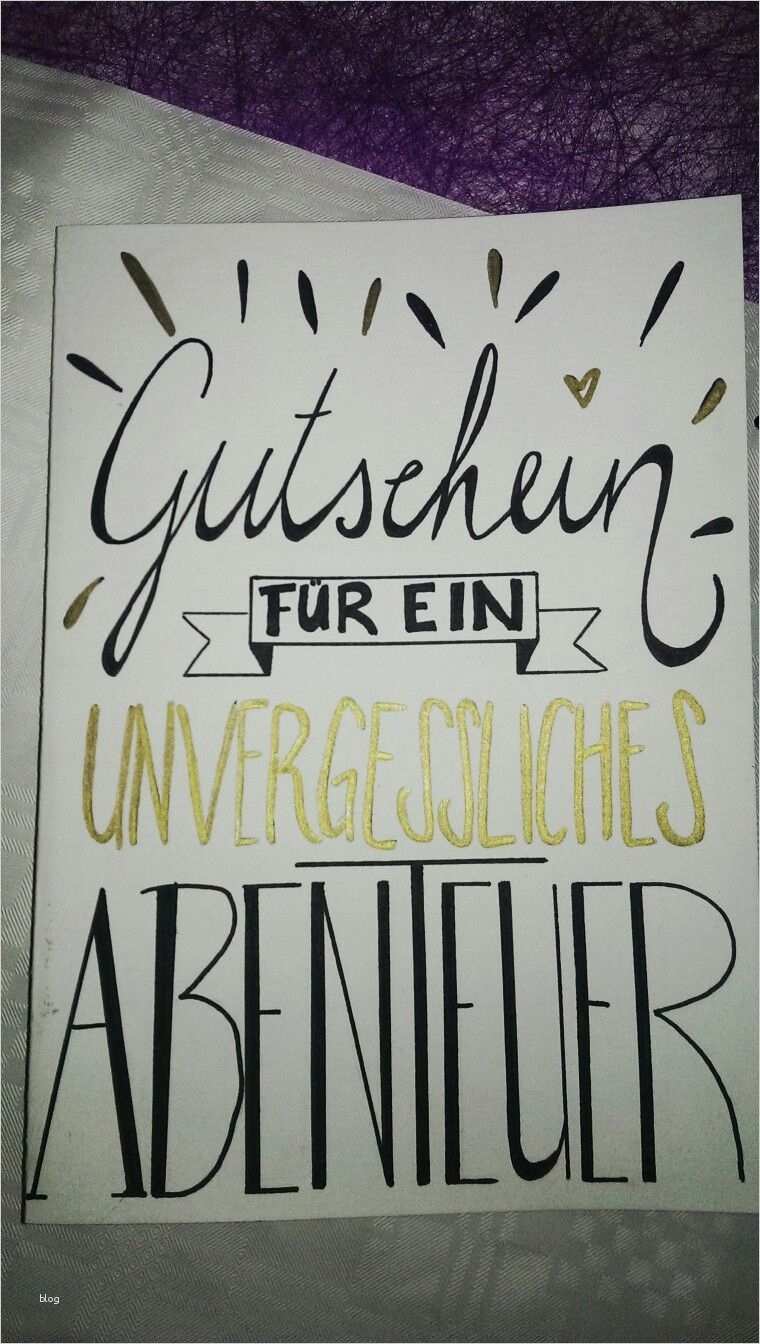 Gutschein
FÜR EIN
UNVERGESSLICHES
ABENTEUER
blog